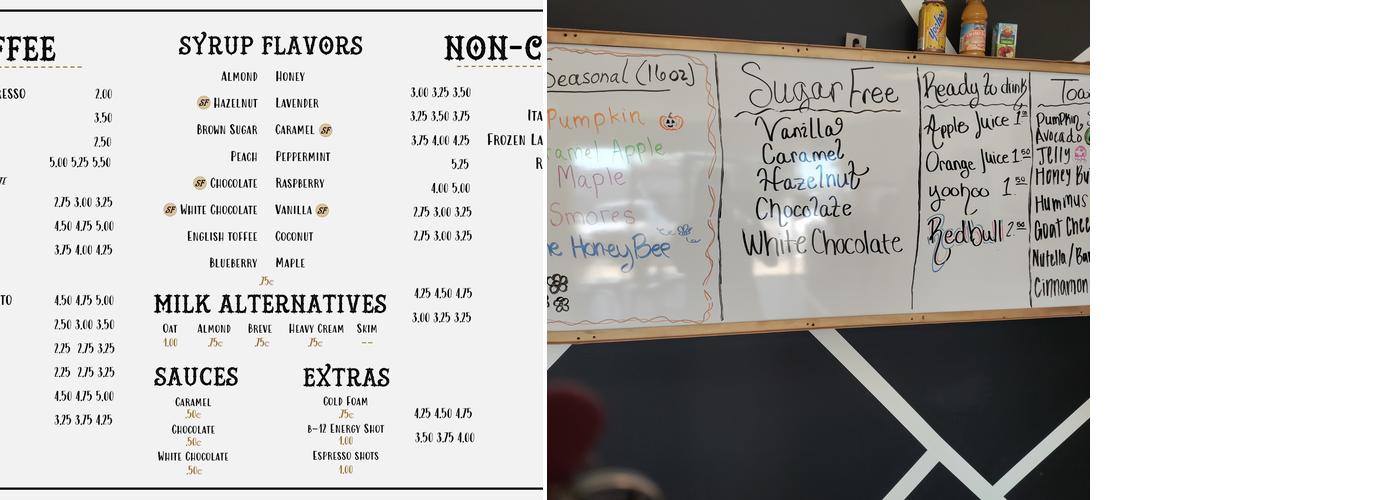 FFEE
RESSO 2.00
3.50
2.50
5.00 5.25 5.50
2.75 3.00 3.25
4.50 4.75 5.00
3.75 4.00 4.25
TO 4.50 4.75 5.00
2.50 3.00 3.50
2.25 2.75 3.25
2.25 2.75 3.25
4.50 4.75 5.00
3.25 3.75 4.25
SYRUP FLAVORS
ALMOND HONEY
SF HAZELNUT LAVENDER
BROWN SUGAR CARAMEL SF
PEACH PEPPERMINT
SF CHOCOLATE RASPBERRY
SF WHITE CHOCOLATE VANILLA SF
ENGLISH TOFFEE COCONUT
BLUEBERRY MAPLE
.75c
MILK ALTERNATIVES
OAT ALMOND BREVE HEAVY CREAM SKIM
1.00 .75c .75c .75c --
SAUCES
CARAMEL
.50c
CHOCOLATE
.50c
WHITE CHOCOLATE
.50c
EXTRAS
COLD FOAM
.75c
B-12 ENERGY SHOT
1.00
ESPRESSO SHOTS
1.00
NON-C
3.00 3.25 3.50
3.25 3.50 3.75 ITA
3.75 4.00 4.25 FROZEN LA
5.25 R
4.00 5.00
2.75 3.00 3.25
2.75 3.00 3.25
4.25 4.50 4.75
3.00 3.25 3.25
4.25 4.50 4.75
3.50 3.75 4.00
Seasonal (16oz)
Pumpkin
ramel Apple
Maple
Smores
e HoneyBee
Sugar Free
Vanilla
Caramel
Hazelnut
Chocolate
White Chocolate
Ready to drink
Apple Juice
Orange Juice 1.50
yoohoo 1.50
Redbull 2.50
Toa
Pumpkin
Avocado
Jelly
Honey Bu
Hummus
Goat Chee
Nutella/Ban
Cinnamon